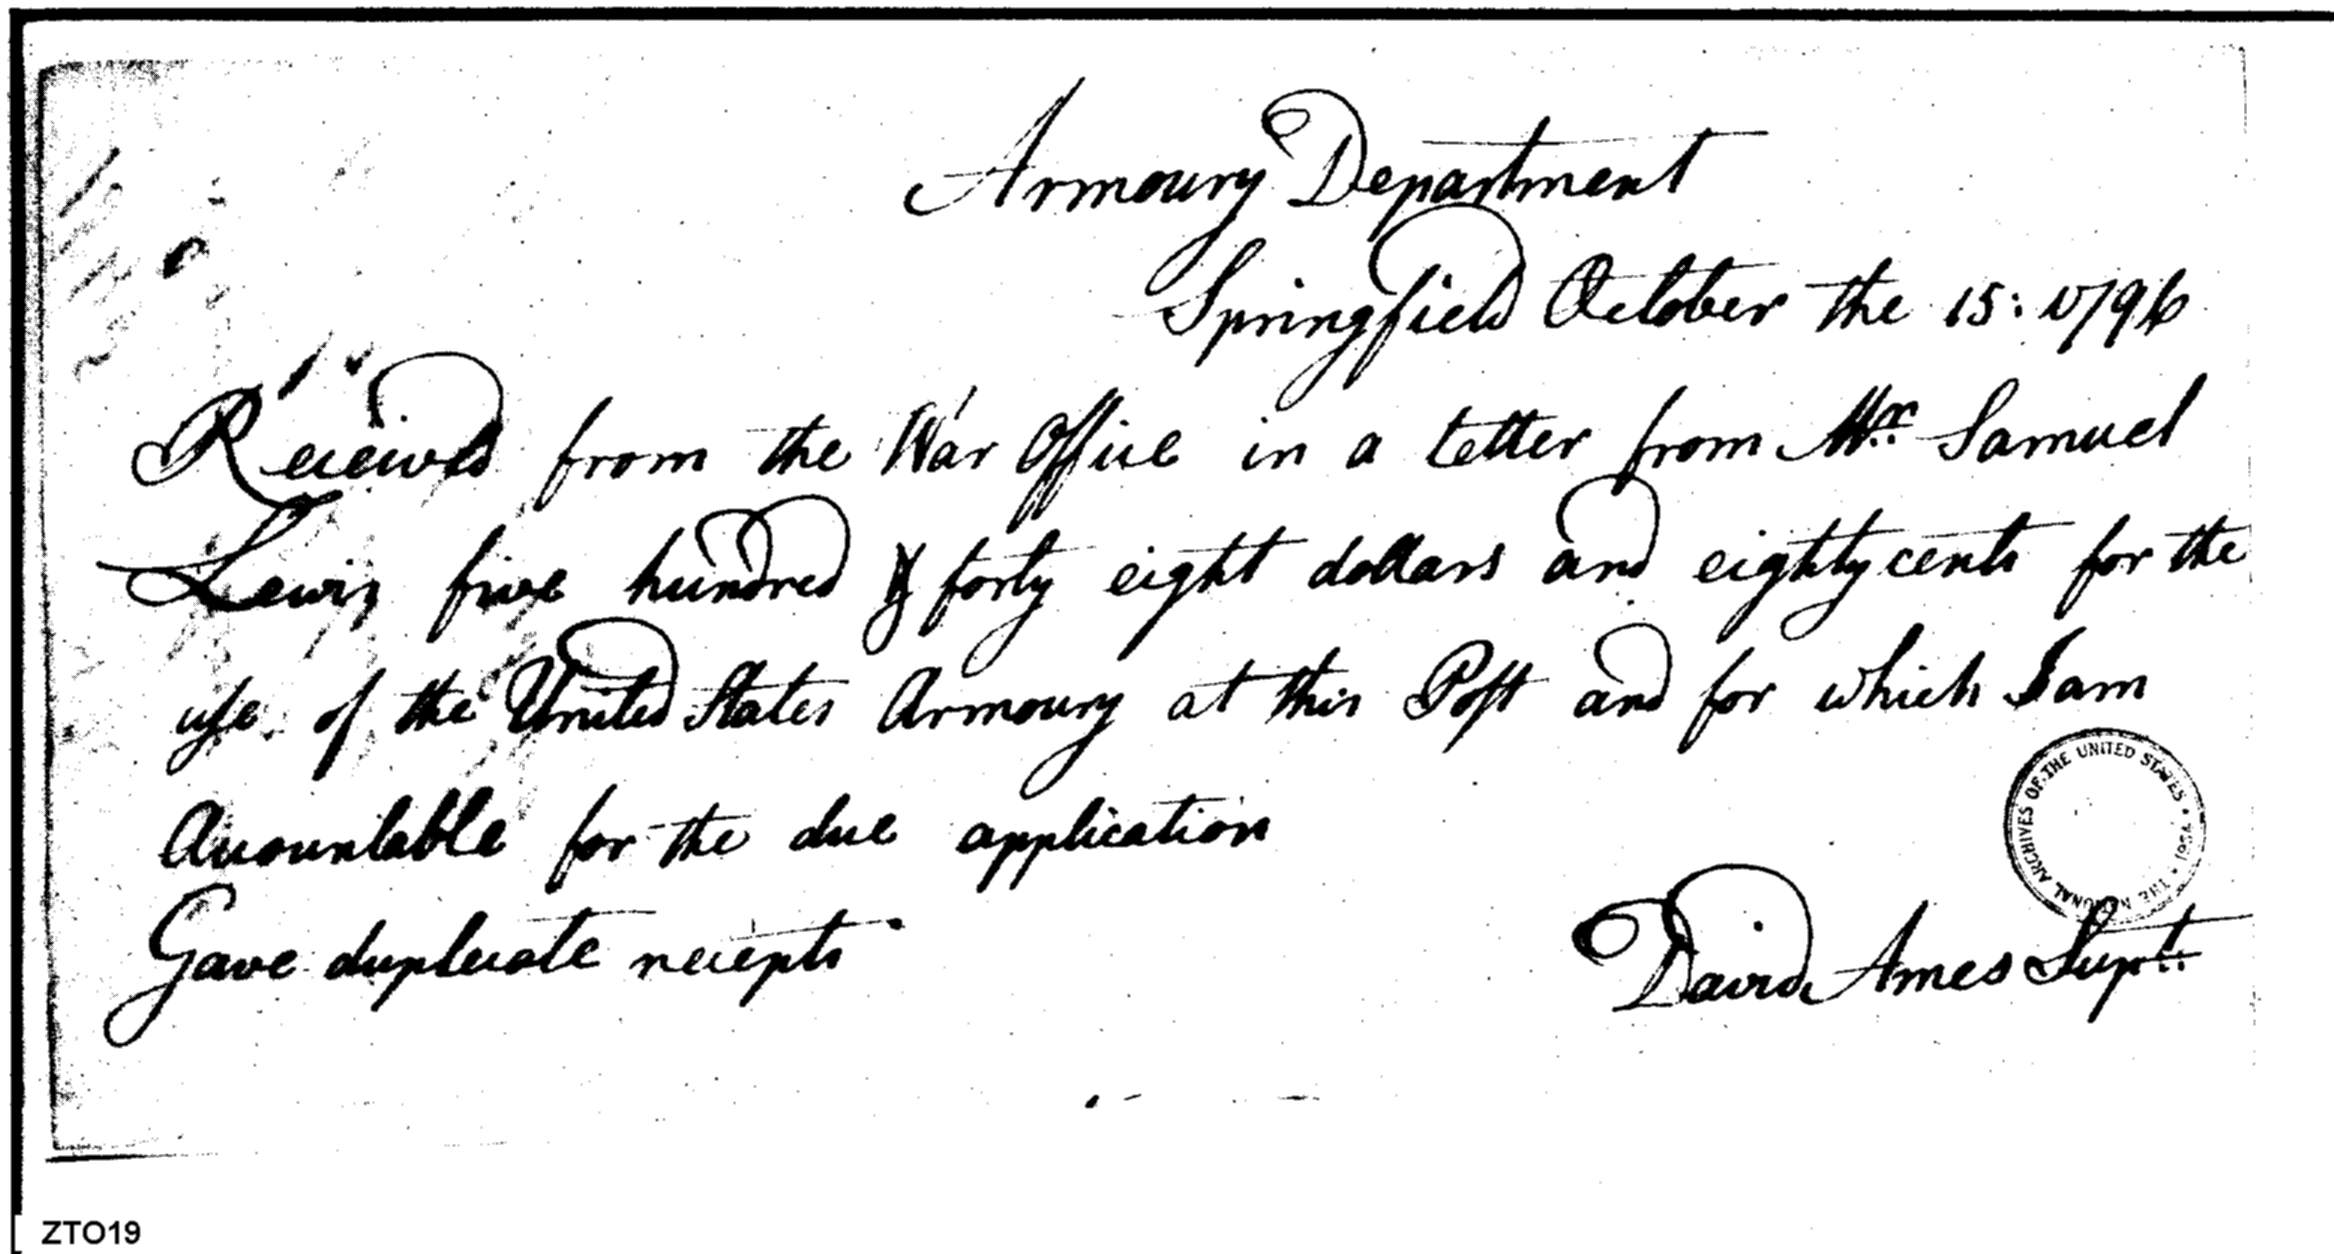 Armoury Department
Springfield October the 15: 1796
Received from the War Office in a letter from Mr. Samuel
Lewis five hundred & forty eight dollars and eighty cents for the
use of the United States Armoury at this Post and for which I am
Accountable for the due application
Gave duplecate reciepts
David Ames Supt.
THE NATIONAL ARCHIVES OF THE UNITED STATES • 1934 •
ZTO19